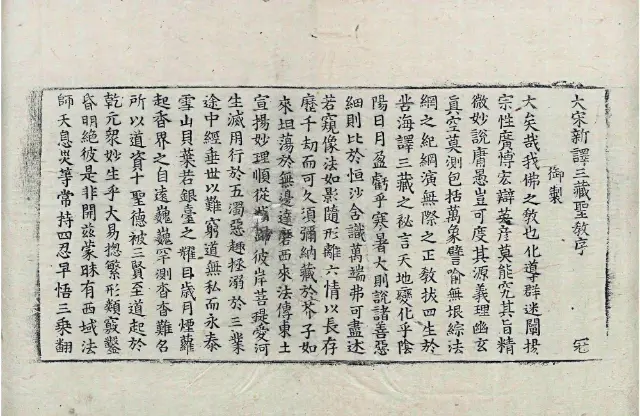 大宋新譯三藏聖教序
御製
大矣哉我佛之教也化導群迷闡揚
宗性廣博宏辯英彥莫能究其旨精
微妙說庸愚豈可度其源義理幽玄
真空莫測包括萬象譬喻無垠綜法
網之紀綱演無際之正教拔四生於
苦海譯三藏之祕言天地變化乎陰
陽日月盈虧乎寒暑大則說諸善惡
細則比於恒沙含識萬端弗可盡述
若窺像法如影隨形離六情以長存
歷千劫而可久須彌納藏於芥子如
來坦蕩於無邊達磨西來法傳東土
宣揚妙理順從歸彼岸菩提愛河
生滅用行於五濁惡趣拯溺於三業
途中經垂世以難窮道無私而永泰
雪山貝葉若銀臺之耀目歲月煙蘿
起香界之自遠巍巍罕測杳杳難名
所以道資十聖德被三賢至道起於
乾元眾妙生乎大易揔繁形類竅鑿
昏明絕彼是非開茲蒙昧有西域法
師天息災等常持四忍早悟三乘翻